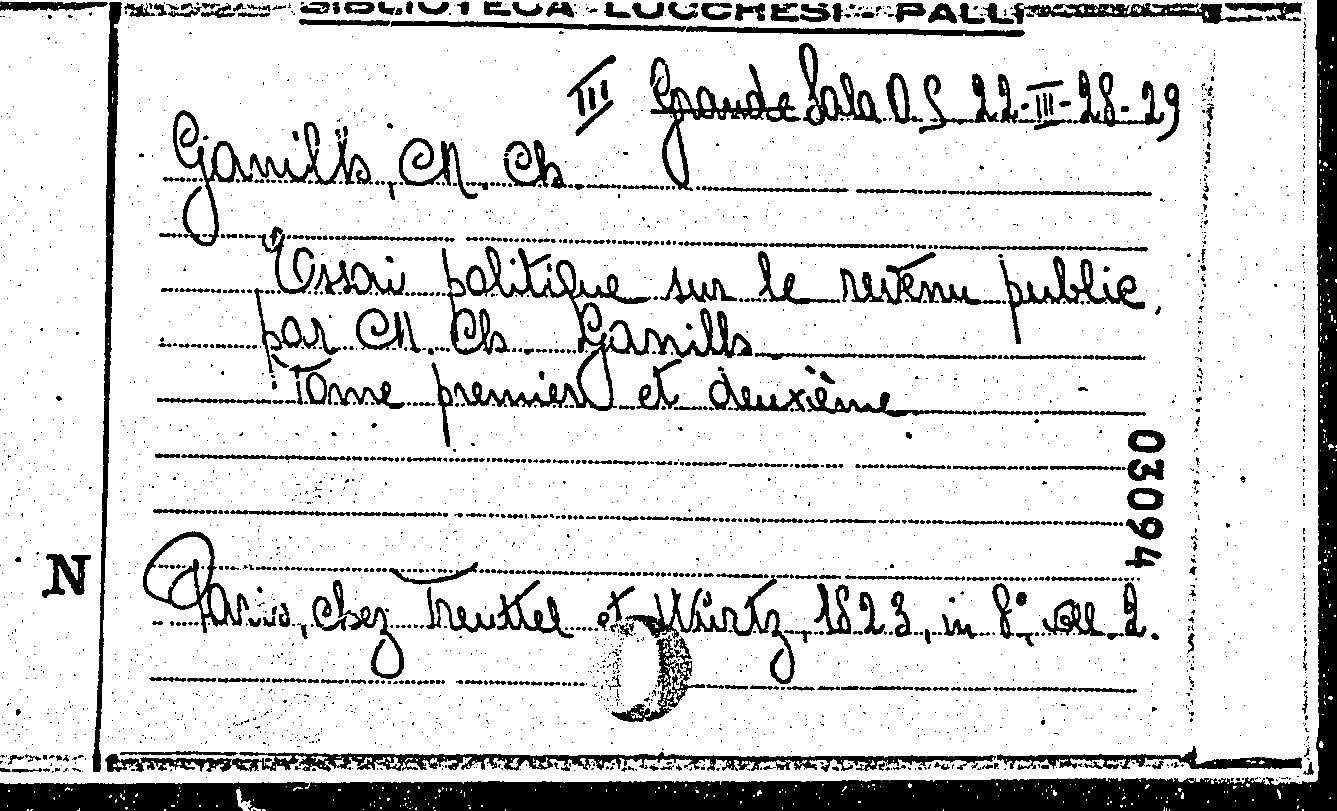 BIBLIOTECA LUCCHESI - PALLI
III Grande Sala D. S. 22-III-28-29
Ganilh, M. Ch.
Essai politique sur le revenu public,
par M. Ch. Ganilh
Tome premier et deuxième
03094
N
Paris, chez Treuttel et Würtz, 1823, in 8°, vol. 2.